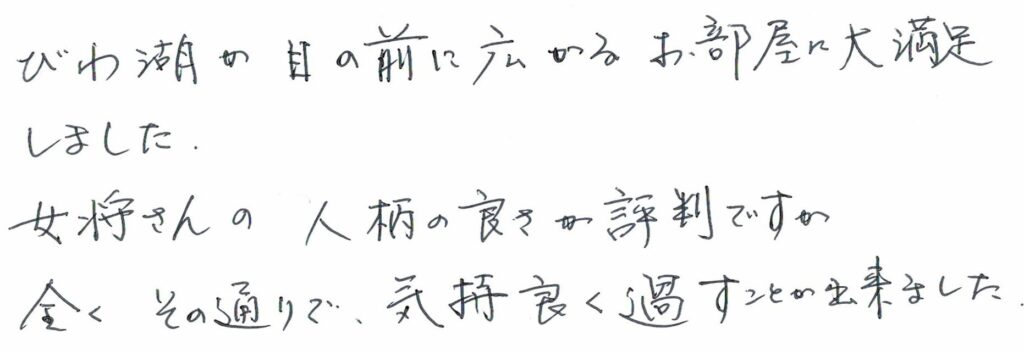 びわ湖が目の前に広がるお部屋に大満足
しました.
女将さんの人柄の良さが評判ですが
全くその通りで、気持良く過すことが出来ました.